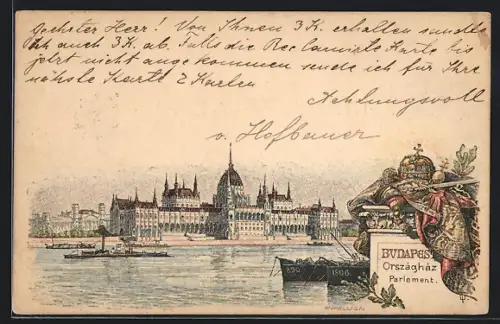 Geehrter Herr! Von Ihnen 3 K. erhalten sandte
ich auch 3 K. ab. Falls die Reclamirte Karte bis
jetzt nicht angekommen sende ich für Ihre
nächste Karte 2 Karten
Achtungsvoll
v. Hofbauer
BUDAPEST
Országház
Parlement.